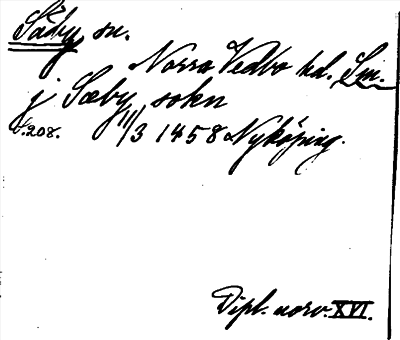 Säby sn.
Norra Vedbo hd. Sm.
j Sæby sokn
s. 208. 11/3 1458 Nyköping.
Dipl. norv. XVI.